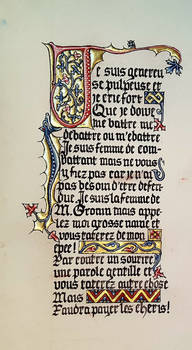 Je suis genereu
se pulpeuse et
je crie fort
Que je doive
me battre me
debattre ou m'ebattre
Je suis femme de com
battant mais ne vous
y fiez pas car je n'ai
pas besoin d'être defen
due. Je suis la femme de
M. Groin mais appe
lez moi grosse nane et
vous taterez de mon
epee!
Par contre un sourire
une parole gentille et
vous taterez autre chose
Mais
Faudra payer les cheris!